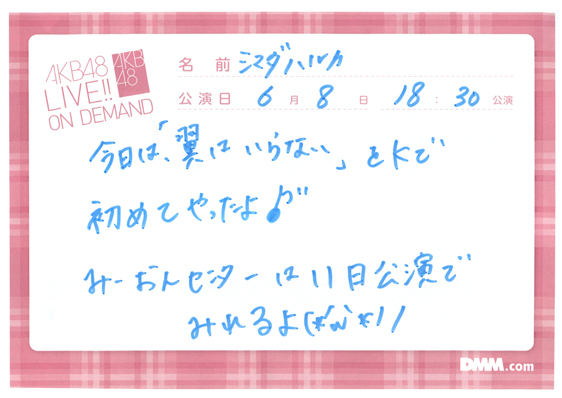 AKB48
LIVE!!
ON DEMAND
AKB
48
名前 シマダハルカ
公演日 6月8日 18:30公演
今日は、「翼はいらない」をKで
初めてやったよ♪
みーおんセンターは11日公演で
みれるよ(*'ω'*)ノ
DMM.com